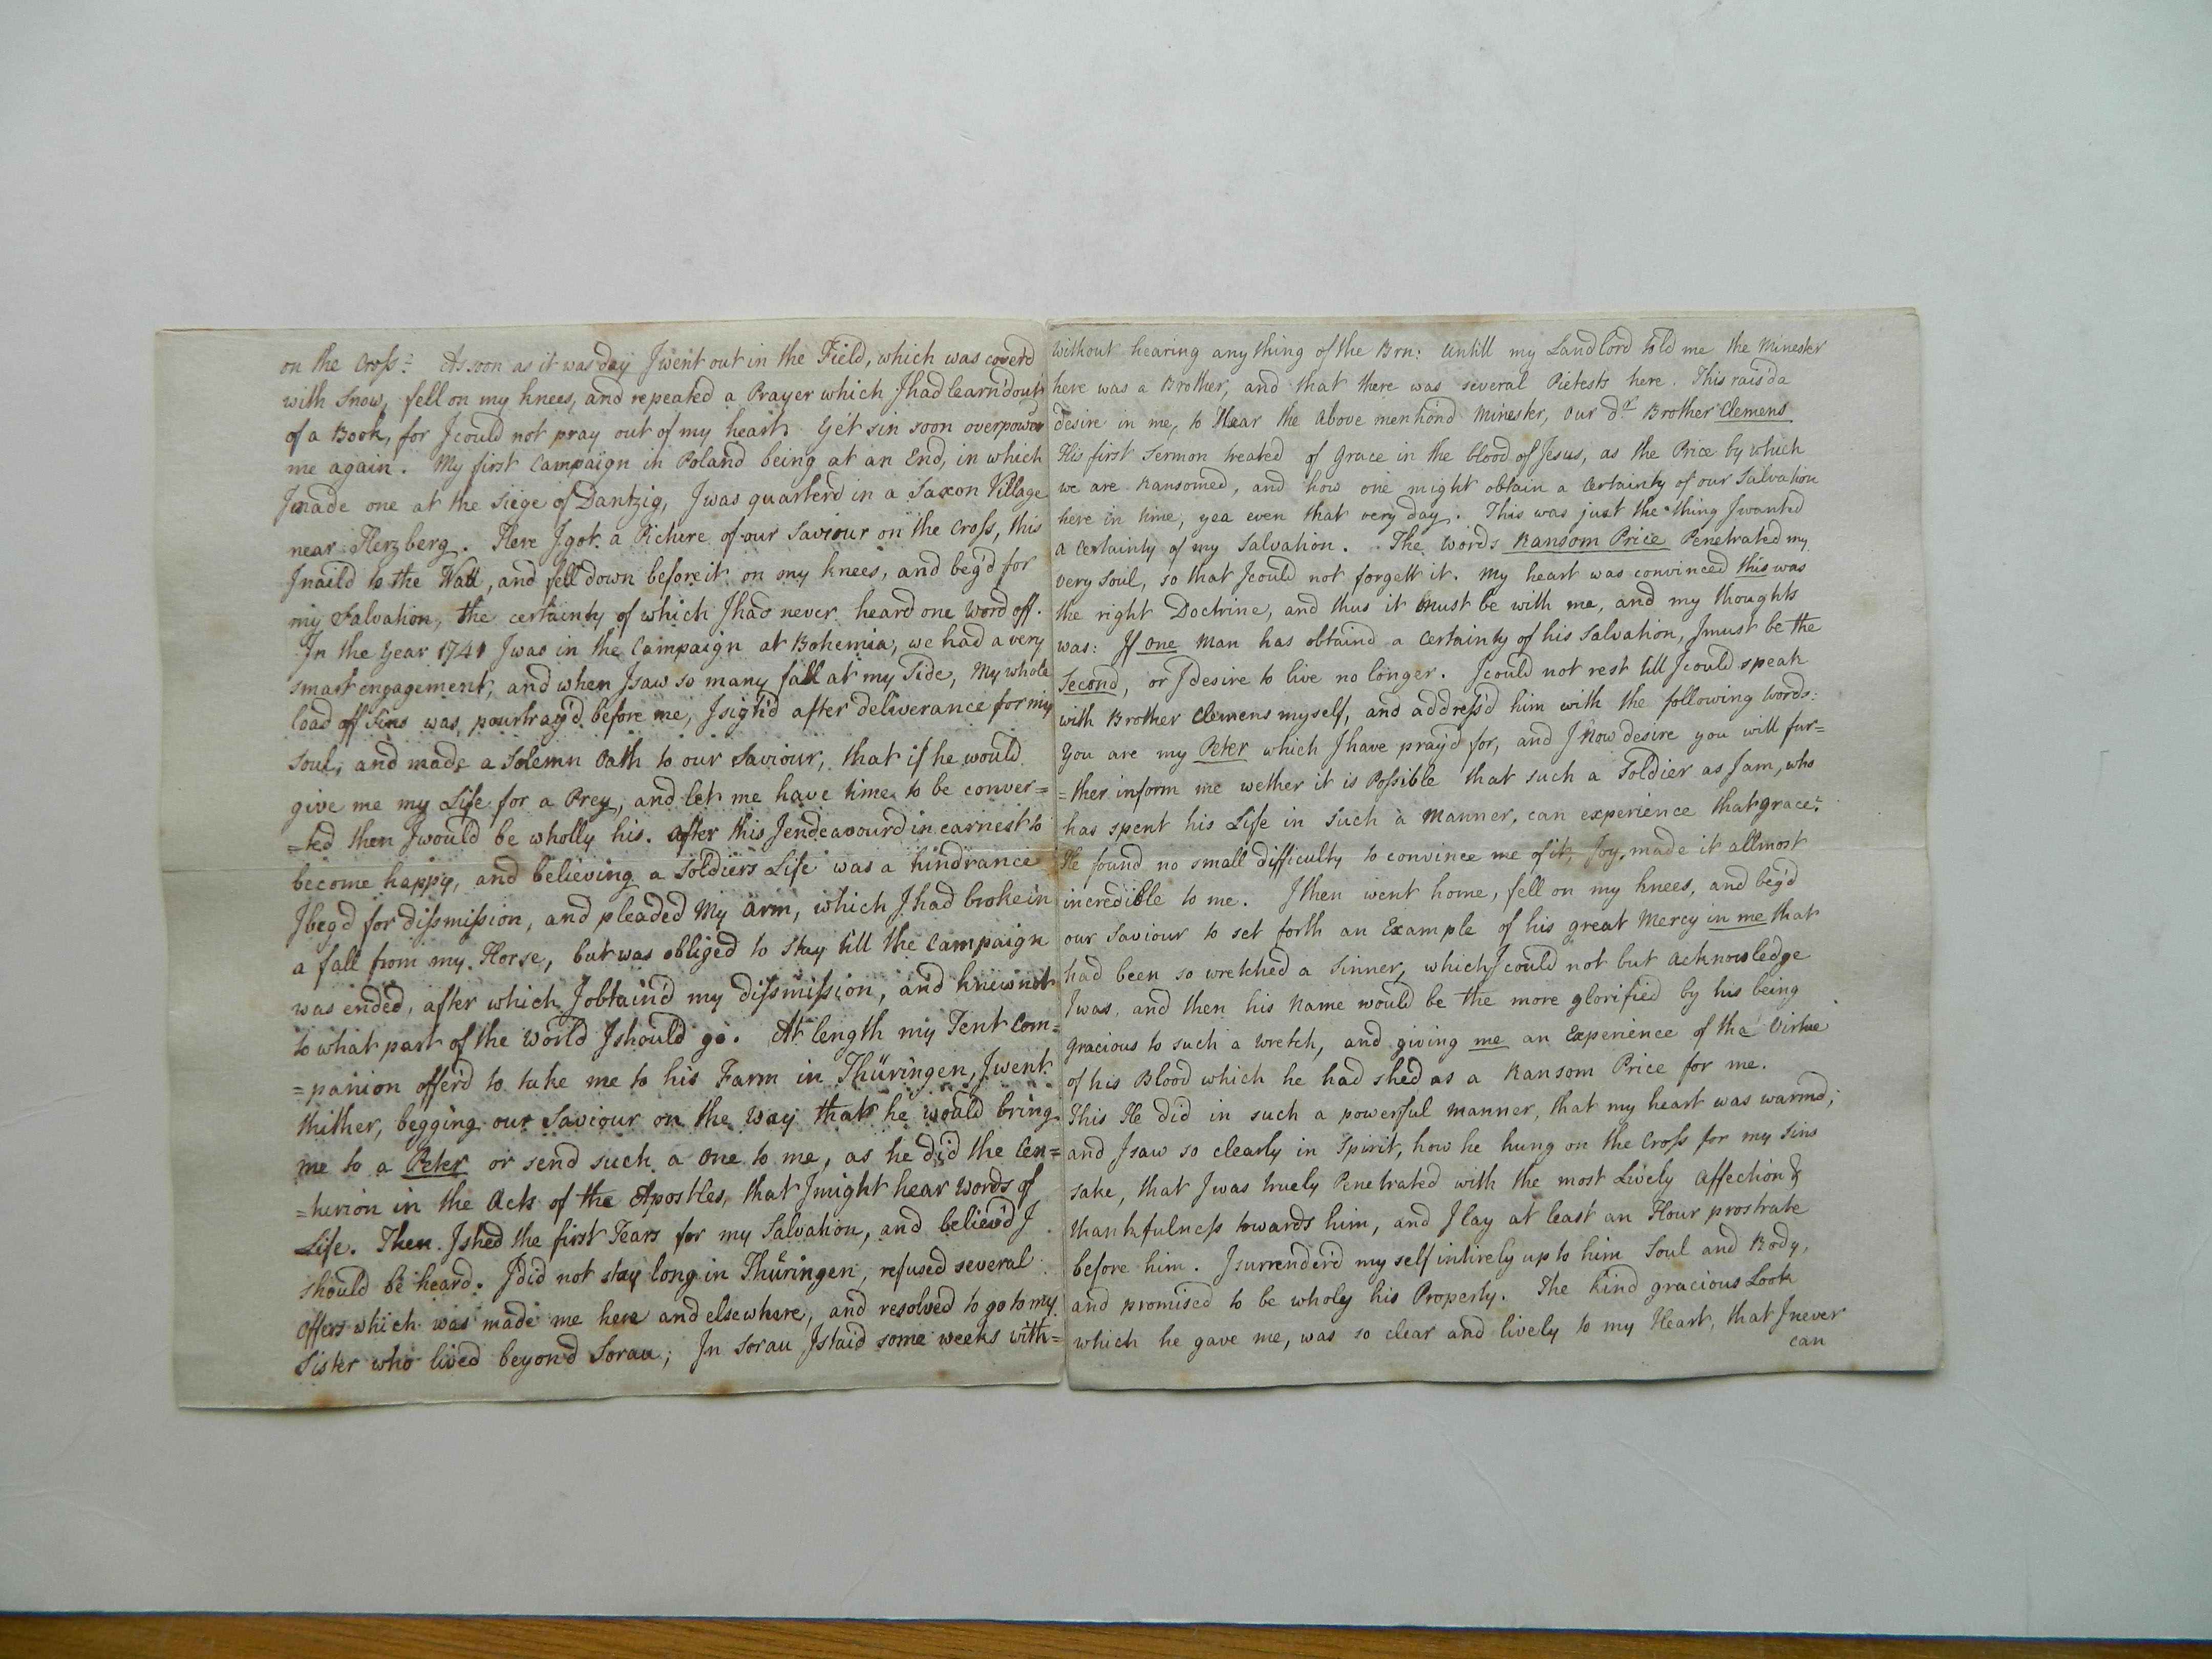 on the Cross: As soon as it was day I went out in the Field, which was coverd
with Snow, fell on my knees, and repeated a Prayer which I had learn'd out
of a Book, for I could not pray out of my heart. Yet sin soon overpowerd
me again. My first Campaign in Poland being at an End, in which
I made one at the Siege of Dantzig, I was quarterd in a Saxon Village
near Herzberg. Here I got a Picture of our Saviour on the Cross, this
I naild to the Wall, and fell down before it on my knees, and beg'd for
my Salvation, the certainty of which I had never heard one word off.
In the Year 1741 I was in the Campaign at Bohemia, we had a very
smart engagement, and when I saw so many fall at my Side, My whole
load off Sins was pourtray'd before me, I sigh'd after deliverance for my
Soul, and made a Solemn Oath to our Saviour, that if he would
give me my Life for a Prey, and let me have time to be conver=
=ted then I would be wholly his. After this I endeavourd in earnest to
become happy, and believing a Soldiers Life was a hindrance
I beg'd for dissmission, and pleaded My Arm, which I had broke in
a fall from my Horse, but was obliged to Stay till the Campaign
was ended, after which I obtain'd my dissmission, and knew not
to what part of the World I should go. At length my Tent Com=
=panion offer'd to take me to his Farm in Thüringen, I went
thither, begging our Saviour on the way that he would bring
me to a Peter or send such a One to me, as he did the Cen=
=turion in the Acts of the Apostles, that I might hear Words of
Life. Then I shed the first Tears for my Salvation, and believ'd I
should be heard. I did not stay long in Thüringen, refused several
Offers which was made me here and elsewhere, and resolved to go to my
Sister who lived beyond Sorau; In Sorau I staid some weeks with=
without hearing any thing of the Brn: untill my Landlord told me the Minester
here was a Brother, and that there was several Pietests here. This rais'd a
desire in me, to Hear the above mention'd Minester, our dr Brother Clemens
His first Sermon treated of Grace in the blood of Jesus, as the Price by which
we are Ransomed, and how one might obtain a Certainty of our Salvation
here in time, yea even that very day. This was just the thing I wanted
a Certainty of my Salvation. The Words Ransom Price Penetrated my
very Soul, so that I could not forgett it. My heart was convinced this was
the right Doctrine, and thus it must be with me, and my thoughts
was: If One Man has obtaind a Certainty of his Salvation, I must be the
Second, or I desire to live no longer. I could not rest till I could speak
with Brother Clemens myself, and address'd him with the following Words:
You are my Peter which I have pray'd for, and I Now desire you will fur=
=ther inform me wether it is Possible that such a Soldier as I am, who
has spent his Life in Such a Manner, can experience that grace:
He found no small difficulty to convince me of it, Joy, made it allmost
incredible to me. I then went home, fell on my knees, and beg'd
our Saviour to set forth an Example of his great Mercy in me that
had been so wretched a Sinner, which I could not but Acknowledge
I was, and then his Name would be the more glorified by his being
gracious to such a wretch, and giving me an Experience of the Virtue
of his Blood which he had shed as a Ransom Price for me.
This He did in such a powerful manner, that my heart was warmd;
and I saw so clearly in Spirit, how he hung on the Cross for my Sins
sake, that I was truely Penetrated with the most Lively Affection &
thankfulness towards him, and I lay at least an Hour prostrate
before him. I surrender'd my self intirely up to him Soul and Body,
and promised to be wholy his Property. The kind gracious Look
which he gave me, was so clear and lively to my Heart, that I never
can